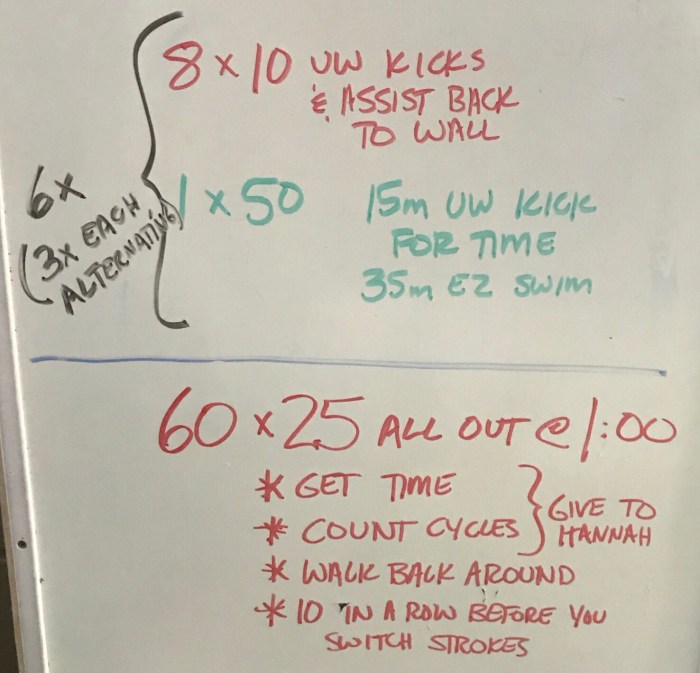 8 x 10 UW KICKS
& ASSIST BACK
TO WALL
6x
(3x EACH
ALTERNATING)
1 x 50 15m UW KICK
FOR TIME
35m EZ SWIM
60 x 25 ALL OUT @ 1:00
* GET TIME
* COUNT CYCLES } GIVE TO
HANNAH
* WALK BACK AROUND
* 10 IN A ROW BEFORE YOU
SWITCH STROKES